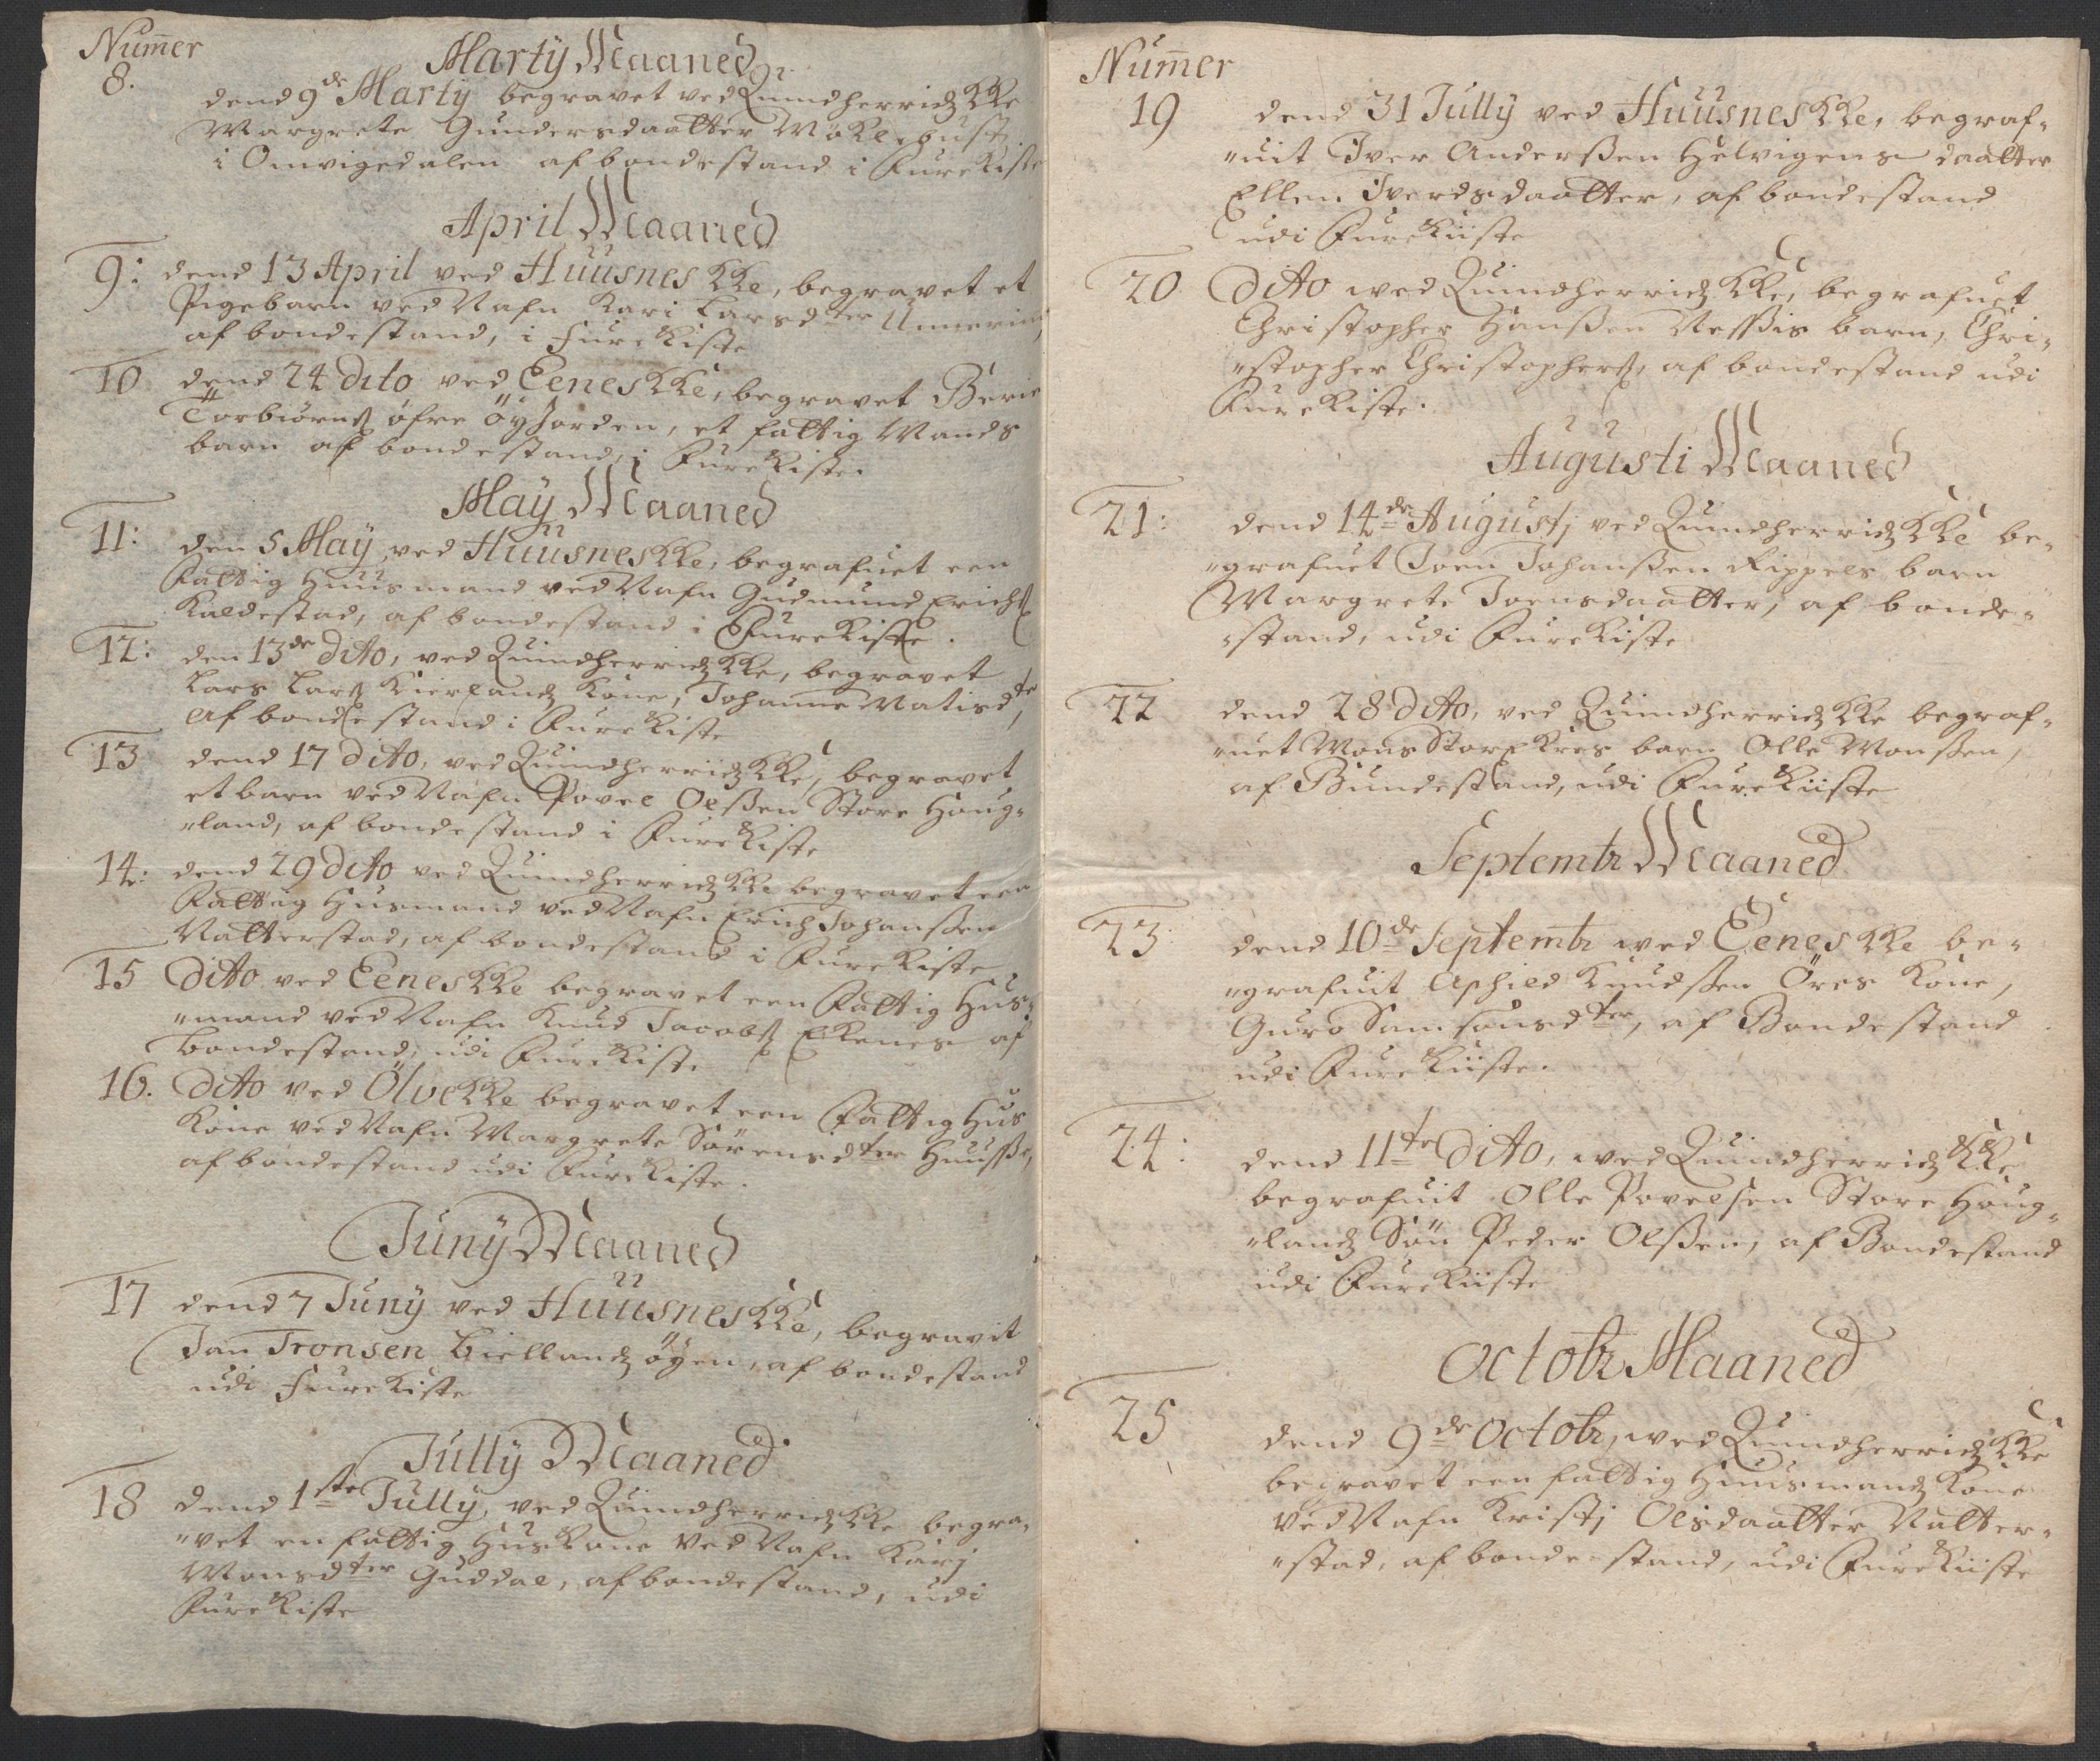 Numer
Marty Maaned
8.
dend 9de Marty begravet ved Quindherridz KKe
Margrete Gundersdaatter Møklebust
i Omvigedalen af bondestand i Furekiste
April Maaned
9: dend 13 April ved Huusnes KKe, begravet et
Pigebarn ved Nafn Kari Larsdter
af bondestand, i furekiste
10 dend 24 dito ved Eenes KKe, begravet
Torbiørns øfre Øyjorden, et fattig Mands
barn af bondestand, i Furekiste.
May Maaned
11: den 5 May ved Huusnes KKe, begrafuet een
Fattig Huusmand ved Nafn Gudmund Erichs
Kaldestad, af bondestand i Furekiste.
12: den 13de dito, ved Quindherridz KKe, begravet
Lars Lars Kierlandz Kone, Johanne Matisdtr
af bondestand i Furekiste
13 dend 17 dito, ved Quindherridz KKe, begravet
et barn ved Nafn Povel Olssen Store Houg-
"land, af bondestand i Furekiste
14: dend 29 dito ved Quindherridz KKe begravet een
Fattig Husmand ved Nafn Erich Johanssen
Natterstad, af bondestand i Furekiste
15 dito ved Eenes KKe begravet een Fattig Hus-
"mand ved Nafn Knud Jacobs Ekenes af
bondestand, udi Furekiste
16. dito ved Ölve KKe begravet een Fattig Hus
Kone ved Nafn Margrete Sørensdter
af bondestand udi Furekiste.
Juny Maaned
17 dend 7 Juny ved Huusnes KKe, begravit
Jan Tronsen Giellandz øyen, af bondestand
udi Furekiste
Jully Maaned
18 dend 1ste Jully, ved Quindherridz KKe begra-
"vet en fattig Huskone ved Nafn Karj
Monsdter Guddal, af bondestand, udi
Furekiste
Numer
19 dend 31 Jully ved Huusnes KKe, begraf-
"uit Iver Anderssen Helvigens daatter
Ellen Iverdsdaatter, af bondestand
udi Furekiiste
20 dito wed Quindherridz KKe, begrafuet
Christopher Hanssen Nessis barn, Chri-
"stopher Christophers, af bondestand udi
Furekiste.
Augusti Maaned
21: dend 14de Augustj ved Quindherridz KKe be-
"grafuet Joen Johanssen Rippels barn
Margrete Joensdaatter, af bonde-
"stand, udi Furekiste
22 dend 28 dito, ved Quindherridz KKe begraf-
"uet Mons barn Olle Monssen,
af Bundestand, udi Furekiiste
Septembr Maaned
23 dend 10de Septembr wed Eenes KKe be-
"grafuit Aschild Knudssen Öres Kone,
Guro Samsonsdter, af Bondestand
udi Furekiiste.
24: dend 11te dito, wed Quindherridz KKe
begrafuit Olle Povelsen Store Houg-
"landz Søn Peder Olssen, af Bondestand
udi Furekiiste
Octobr Maaned
25 dend 9de Octobr, wed Quindherridz KKe
begravet een fattig Huusmandz Kone
ved Nafn Kristj Olsdaatter Natter-
"stad, af bondestand, udi Furekiiste